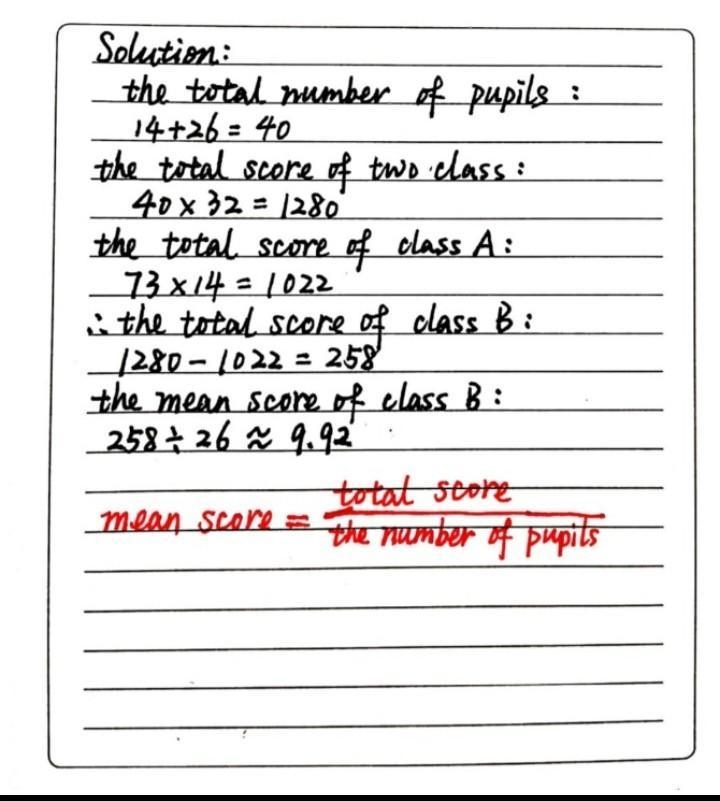 Solution:
the total number of pupils :
14+26 = 40
the total score of two class :
40 × 32 = 1280
the total score of class A :
73 × 14 = 1022
∴ the total score of class B :
1280 - 1022 = 258
the mean score of class B :
258 ÷ 26 ≈ 9.92
mean score = total score
the number of pupils